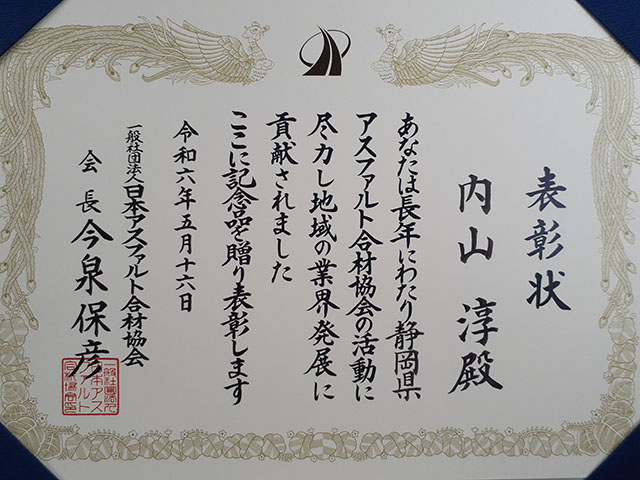 表彰状
内山 淳殿
あなたは長年にわたり静岡県
アスファルト合材協会の活動に
尽力し地域の業界発展に
貢献されました
ここに記念品を贈り表彰します
令和六年五月十六日
一般社団法人日本アスファルト合材協会
会長 今泉保彦